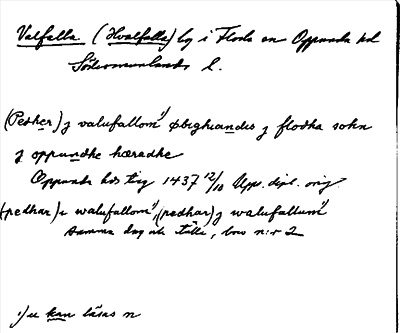 Valfalla (Hvalfalla) by i Floda sn Oppunda hd
Södermanlands l.
(Pedher) j valufallom¹⁾ øbighiandis j flodha sokn
j oppundhe hæradhe
Oppunda hds ting 1437 12/10 Upps. dipl. orig.
(pedhar) i walufallom¹⁾, (pedhar) j walufallum¹⁾
samma dag och ställe, brev n:r 2
¹⁾ u kan läsas n